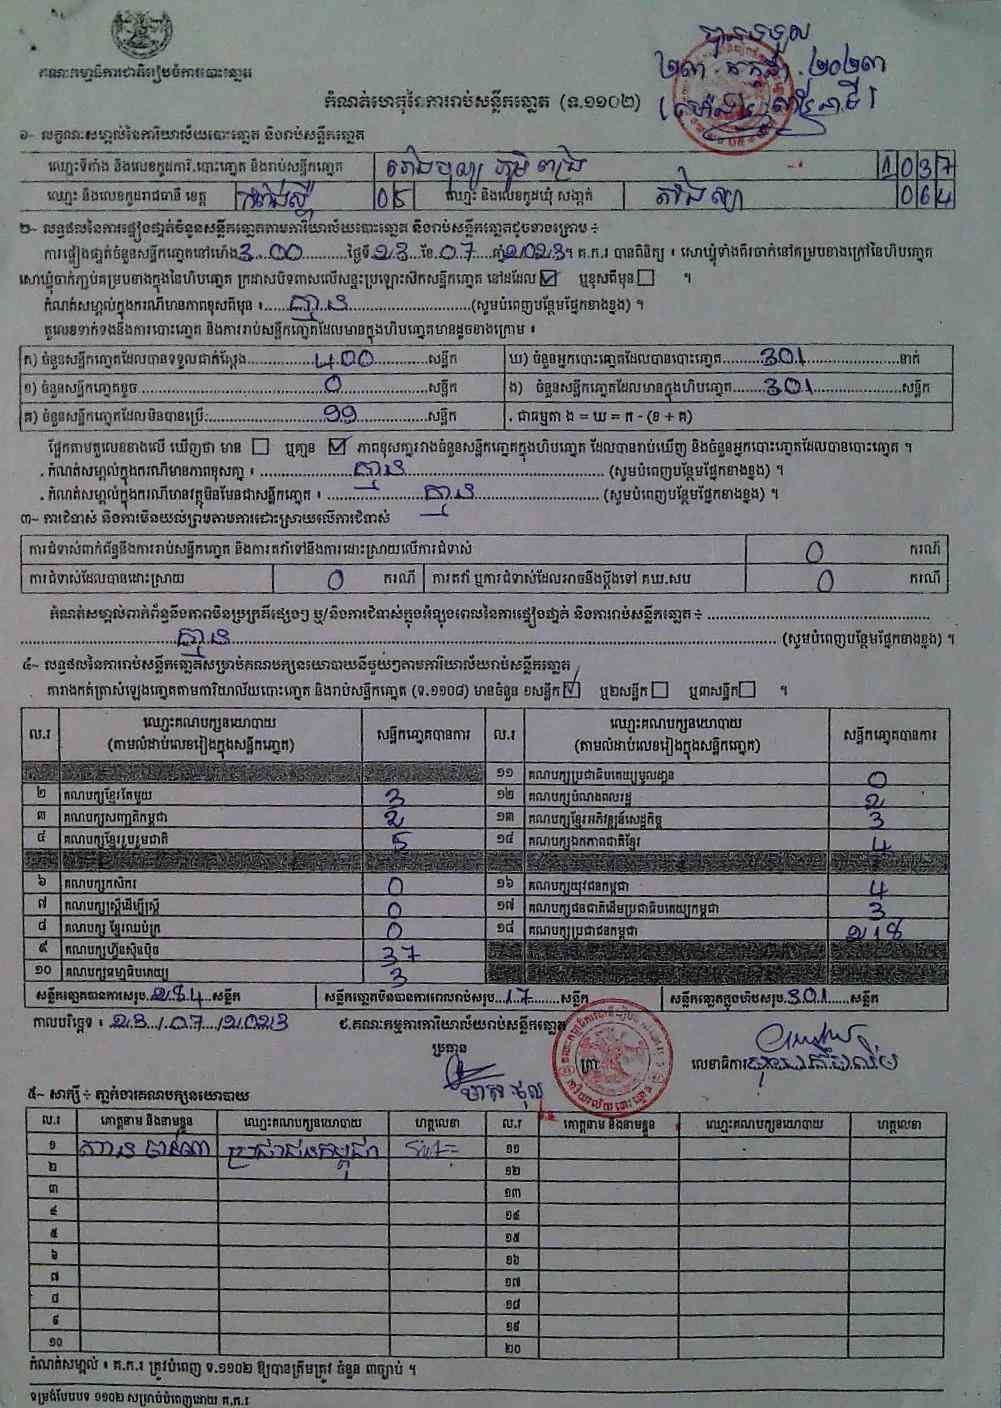 គណៈកម្មាធិការជាតិរៀបចំការបោះឆ្នោត
បានទទួល
២៣ កក្កដា ២០២៣
កំណត់ហេតុនៃការរាប់សន្លឹកឆ្នោត (ទ.១១០២)
១~ លក្ខណៈសម្គាល់នៃការិយាល័យបោះឆ្នោត និងរាប់សន្លឹកឆ្នោត
ឈ្មោះទីតាំង និងលេខកូដការិ.បោះឆ្នោត និងរាប់សន្លឹកឆ្នោត 1037
ឈ្មោះ និងលេខកូដរាជធានី ខេត្ត កំពង់ស្ពឺ 05 ឈ្មោះ និងលេខកូដឃុំ សង្កាត់ 064
២~ លទ្ធផលនៃការផ្ទៀងផ្ទាត់ចំនួនសន្លឹកឆ្នោតតាមការិយាល័យបោះឆ្នោត និងរាប់សន្លឹកឆ្នោតដូចខាងក្រោម ÷
ការផ្ទៀងផ្ទាត់ចំនួនសន្លឹកឆ្នោតនៅម៉ោង 3.00 ថ្ងៃទី 23 ខែ 07 ឆ្នាំ 2023។ គ.ក.រ បានពិនិត្យ ៖ សោឃ្មុំទាំងពីរចាក់នៅគម្របខាងក្រៅនៃហិបឆ្នោត
សោឃ្មុំចាក់ភ្ជាប់គម្របខាងក្នុងនៃហិបឆ្នោត ក្រដាសបិទពាសលើសន្ទះប្រឡោះស៊កសន្លឹកឆ្នោត នៅដដែល ☑ ឬខុសពីមុន ☐ ។
កំណត់សម្គាល់ក្នុងករណីមានភាពខុសពីមុន ៖ គ្មាន (សូមបំពេញបន្ថែមផ្នែកខាងខ្នង) ។
តួលេខទាក់ទងនឹងការបោះឆ្នោត និងការរាប់សន្លឹកឆ្នោតដែលមានក្នុងហិបឆ្នោតមានដូចខាងក្រោម ៖
ក) ចំនួនសន្លឹកឆ្នោតដែលបានទទួលជាក់ស្ដែង 400 សន្លឹក ឃ) ចំនួនអ្នកបោះឆ្នោតដែលបានបោះឆ្នោត 301 នាក់
ខ) ចំនួនសន្លឹកឆ្នោតខូច 0 សន្លឹក ង) ចំនួនសន្លឹកឆ្នោតដែលមានក្នុងហិបឆ្នោត 301 សន្លឹក
គ) ចំនួនសន្លឹកឆ្នោតដែលមិនបានប្រើ 99 សន្លឹក . ជាធម្មតា ង = ឃ = ក - (ខ + គ)
ផ្អែកតាមតួលេខខាងលើ ឃើញថា មាន ☐ ឬគ្មាន ☑ ភាពខុសគ្នារវាងចំនួនសន្លឹកឆ្នោតក្នុងហិបឆ្នោត ដែលបានរាប់ឃើញ និងចំនួនអ្នកបោះឆ្នោតដែលបានបោះឆ្នោត ។
. កំណត់សម្គាល់ក្នុងករណីមានភាពខុសគ្នា ៖ គ្មាន (សូមបំពេញបន្ថែមផ្នែកខាងខ្នង) ។
. កំណត់សម្គាល់ក្នុងករណីមានវត្ថុមិនមែនជាសន្លឹកឆ្នោត ៖ គ្មាន (សូមបំពេញបន្ថែមផ្នែកខាងខ្នង) ។
៣~ ការជំទាស់ និងការមិនយល់ព្រមតាមការដោះស្រាយលើការជំទាស់
ការជំទាស់ពាក់ព័ន្ធនឹងការរាប់សន្លឹកឆ្នោត និងការតវ៉ាទៅនឹងការដោះស្រាយលើការជំទាស់ 0 ករណី
ការជំទាស់ដែលបានដោះស្រាយ 0 ករណី ការតវ៉ា ឬការជំទាស់ដែលអាចនឹងប្ដឹងទៅ គឃ.សប 0 ករណី
កំណត់សម្គាល់ពាក់ព័ន្ធនឹងភាពមិនប្រក្រតីផ្សេងៗ ឬ/និងការជំទាស់ក្នុងអំឡុងពេលនៃការផ្ទៀងផ្ទាត់ និងការរាប់សន្លឹកឆ្នោត ÷
គ្មាន (សូមបំពេញបន្ថែមផ្នែកខាងខ្នង) ។
៤~ លទ្ធផលនៃការរាប់សន្លឹកឆ្នោតសម្រាប់គណបក្សនយោបាយនីមួយៗតាមការិយាល័យរាប់សន្លឹកឆ្នោត
តារាងកត់ត្រាសំឡេងឆ្នោតតាមការិយាល័យបោះឆ្នោត និងរាប់សន្លឹកឆ្នោត (ទ.១១០៨) មានចំនួន ១សន្លឹក ☑ ឬ២សន្លឹក ☐ ឬ៣សន្លឹក ☐ ។
ល.រ ឈ្មោះគណបក្សនយោបាយ (តាមលំដាប់លេខរៀងក្នុងសន្លឹកឆ្នោត) សន្លឹកឆ្នោតបានការ ល.រ ឈ្មោះគណបក្សនយោបាយ (តាមលំដាប់លេខរៀងក្នុងសន្លឹកឆ្នោត) សន្លឹកឆ្នោតបានការ
១១ គណបក្សប្រជាធិបតេយ្យមូលដ្ឋាន 0
២ គណបក្សខ្មែរតែមួយ 3 ១២ គណបក្សបំណងពលរដ្ឋ 2
៣ គណបក្សសញ្ជាតិកម្ពុជា 2 ១៣ គណបក្សខ្មែរអភិវឌ្ឍន៍សេដ្ឋកិច្ច 3
៤ គណបក្សខ្មែររួបរួមជាតិ 5 ១៤ គណបក្សឯកភាពជាតិខ្មែរ 4
៦ គណបក្សកសិករ 0 ១៦ គណបក្សយុវជនកម្ពុជា 4
៧ គណបក្សស្ត្រីដើម្បីស្ត្រី 0 ១៧ គណបក្សជនជាតិដើមប្រជាធិបតេយ្យកម្ពុជា 3
៨ គណបក្ស ខ្មែរឈប់ក្រ 0 ១៨ គណបក្សប្រជាជនកម្ពុជា 218
៩ គណបក្សហ៊្វុនស៊ិនប៉ិច 37
១០ គណបក្សធម្មាធិបតេយ្យ 3
សន្លឹកឆ្នោតបានការសរុប 284 សន្លឹក សន្លឹកឆ្នោតមិនបានការពេលរាប់សរុប 17 សន្លឹក សន្លឹកឆ្នោតក្នុងហិបសរុប 301 សន្លឹក
កាលបរិច្ឆេទ ៖ 23/07/2023 ៩.គណៈកម្មការការិយាល័យរាប់សន្លឹកឆ្នោត
ប្រធាន ត្រា លេខាធិការ
៥~ សាក្សី ÷ ភ្នាក់ងារគណបក្សនយោបាយ
ល.រ គោត្តនាម និងនាមខ្លួន ឈ្មោះគណបក្សនយោបាយ ហត្ថលេខា ល.រ គោត្តនាម និងនាមខ្លួន ឈ្មោះគណបក្សនយោបាយ ហត្ថលេខា
១ ប្រជាជនកម្ពុជា ១១
២ ១២
៣ ១៣
៤ ១៤
៥ ១៥
៦ ១៦
៧ ១៧
៨ ១៨
៩ ១៩
១០ ២០
កំណត់សម្គាល់ ៖ គ.ក.រ ត្រូវបំពេញ ទ.១១០២ ឱ្យបានត្រឹមត្រូវ ចំនួន ៣ច្បាប់ ។
ទម្រង់បែបបទ ១១០២ សម្រាប់បំពេញដោយ គ.ក.រ